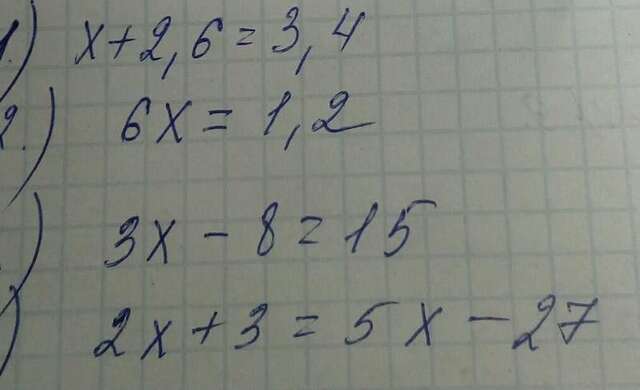 1.) x+2,6=3,4
2.) 6x=1,2
) 3x-8=15
) 2x+3=5x-27